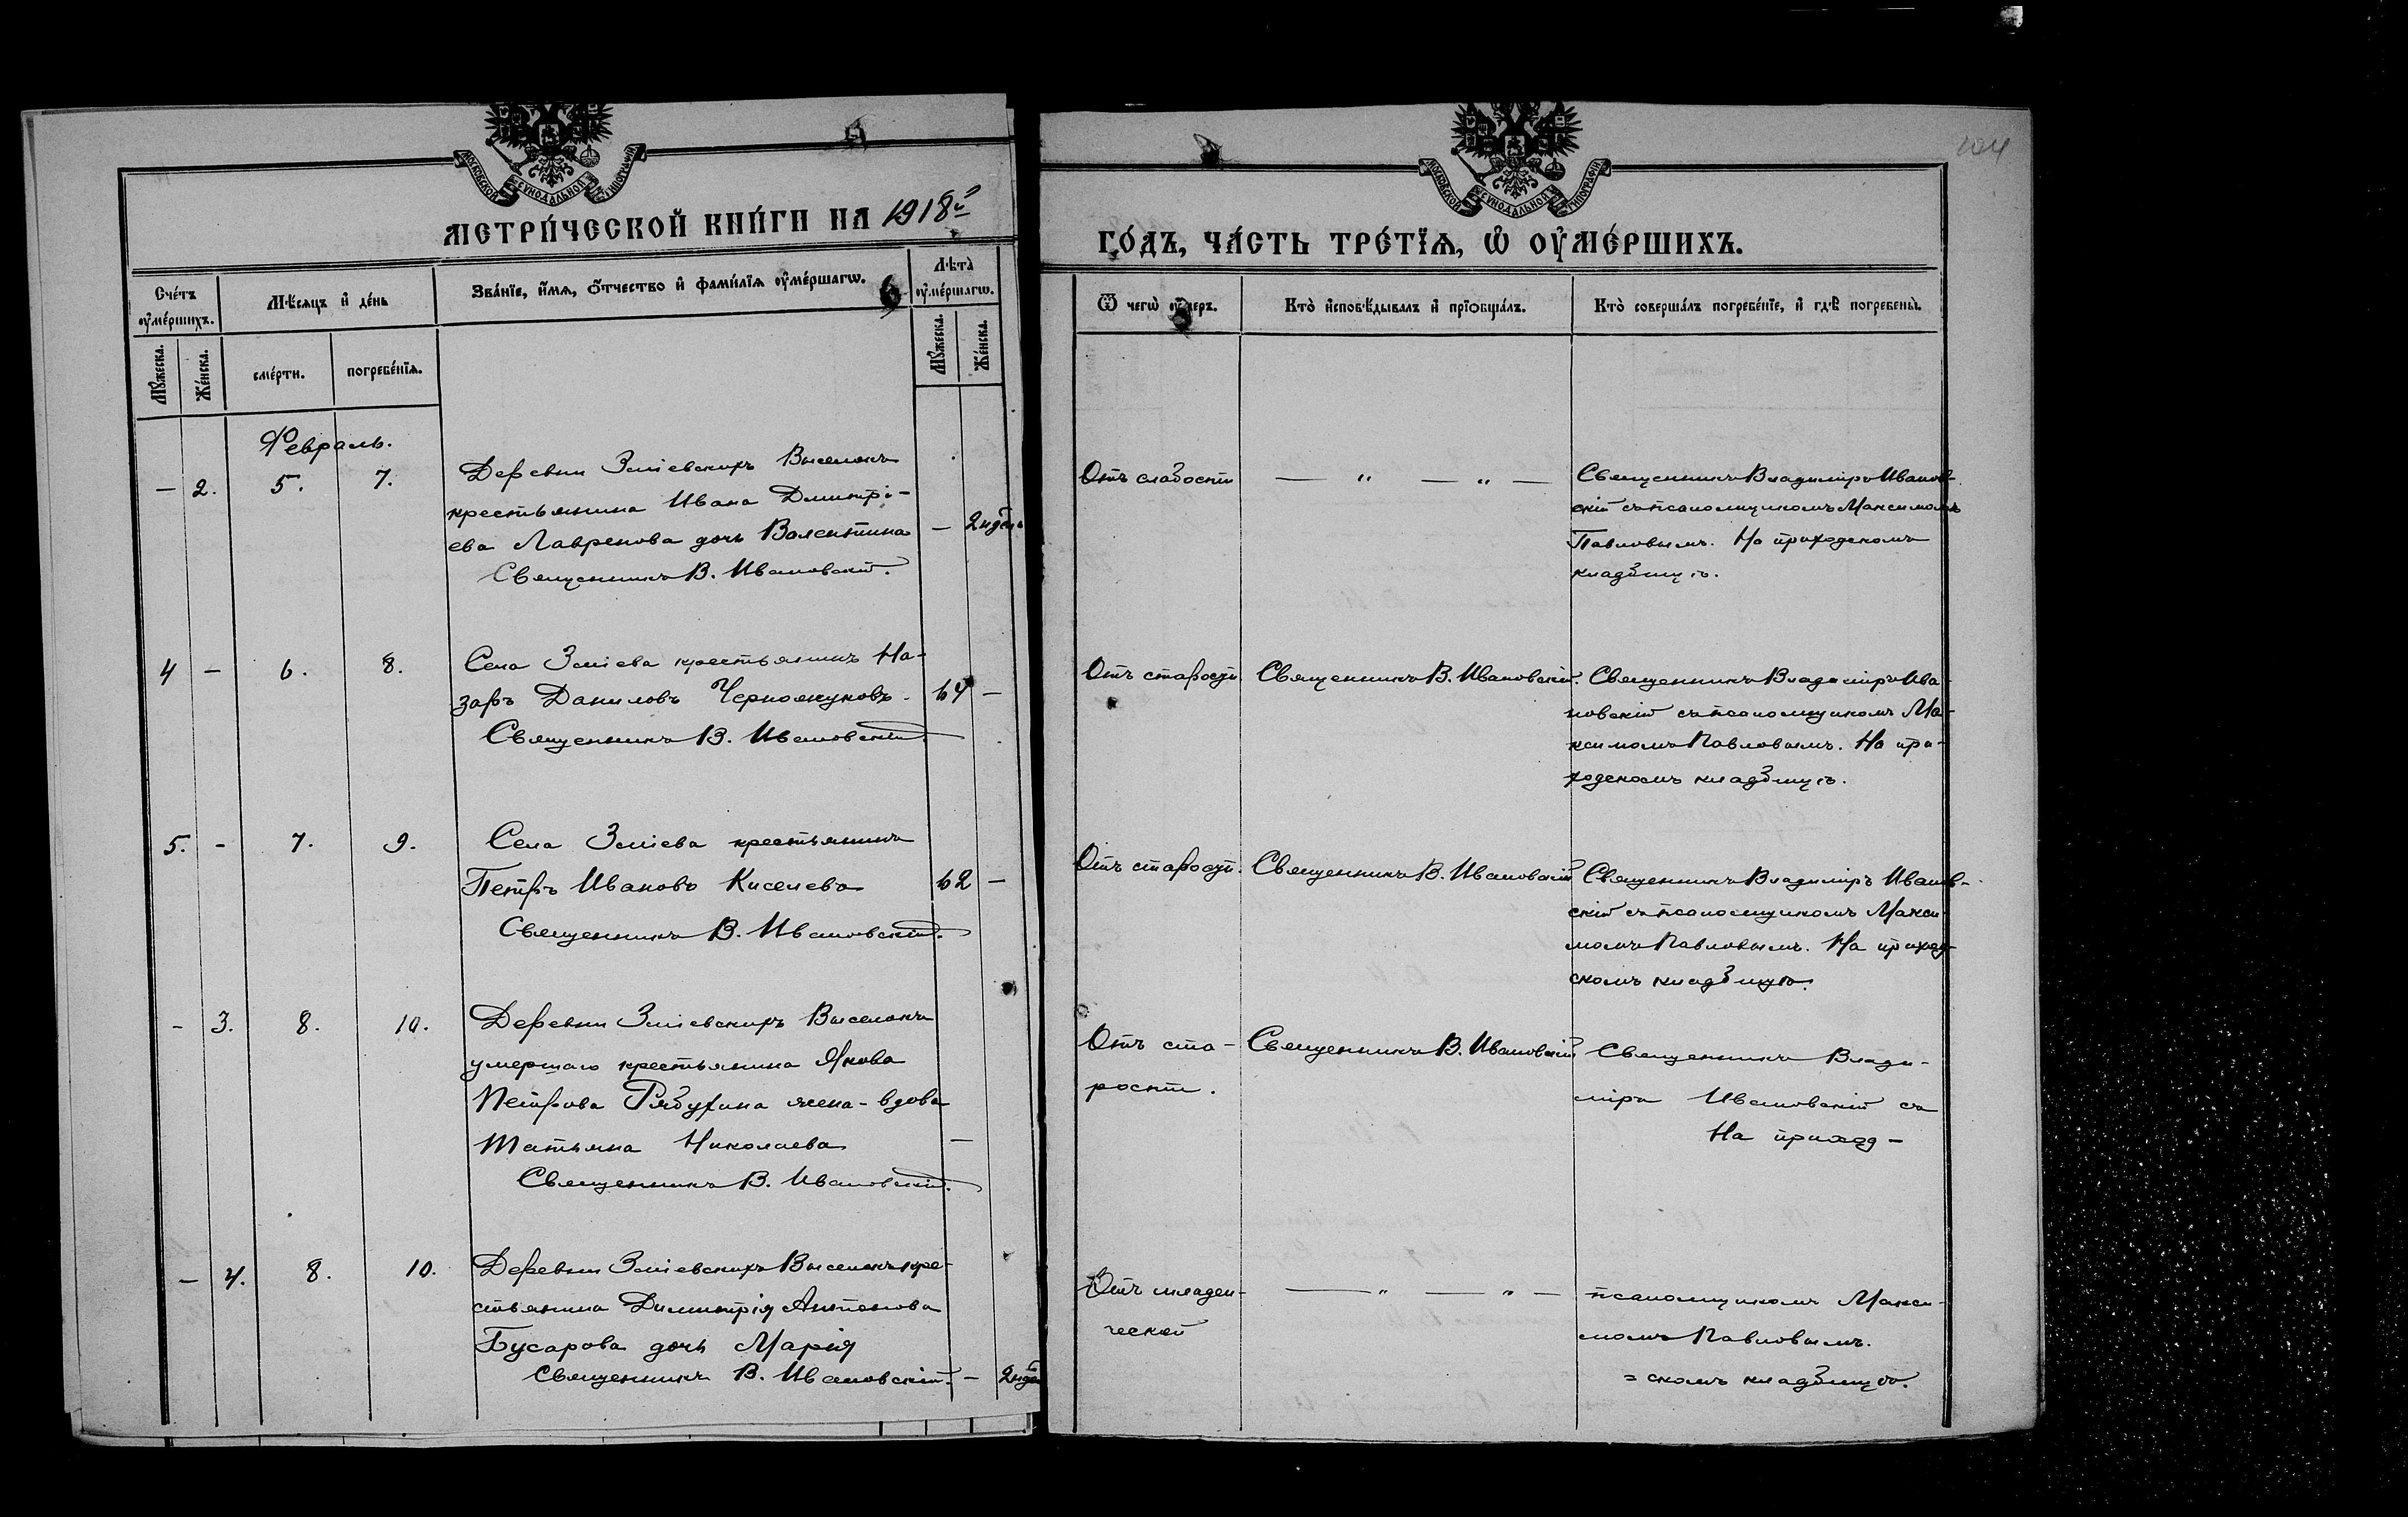 104
МОСКОВСКОЙ СѴНОДАЛЬНОЙ ТИПОГРАФІИ
МОСКОВСКОЙ СѴНОДАЛЬНОЙ ТИПОГРАФІИ
МЕТРИ́ЧЕСКОЙ КНИ́ГИ НА 1918й
ГО́ДЪ, ЧА́СТЬ ТРЕ́ТІѦ, Ѡ҆ ОУ҆МЕ́РШИХЪ.
Сче́тъ оу҆ме́ршихъ.
Мѣ́сѧцъ и҆ де́нь
Зва́нїе, и҆́мѧ, ѻ҆́тчество и҆ фами́лїѧ оу҆ме́ршагѡ.
Лѣ̀та оу҆ме́ршагѡ.
Мꙋ́жеска.
Же́нска.
сме́рти.
погребе́нїѧ.
Мꙋ́жеска.
Же́нска.
Ѿ чегѡ̀ оу҆́меръ.
Кто̀ и҆сповѣ́дывалъ и҆ прїѡбща́лъ.
Кто̀ соверша́лъ погребе́нїе, и҆ гдѣ̀ погребены̀.
Февраль.
— 2. 5. 7.
Деревни Зміевскихъ Выселокъ
крестьянина Ивана Дмитрі-
ева Лавренова дочь Валентина
Священникъ В. Ивановскій.
— 2 недѣл
Отъ слабости
— " — " —
Священникъ Владиміръ Иванов-
скій съ псаломщикомъ Максимомъ
Павловымъ. На приходскомъ
кладбищѣ.
4 — 6. 8.
Села Зміева крестьянинъ На-
заръ Даниловъ Черножуковъ.
Священникъ В. Ивановскій.
64 —
Отъ старости
Священникъ В. Ивановскій.
Священникъ Владиміръ Ива-
новскій съ псаломщикомъ Ма-
ксимомъ Павловымъ. На при-
ходскомъ кладбищѣ.
5. - 7. 9.
Села Зміева крестьянинъ
Петръ Ивановъ Киселевъ
Священникъ В. Ивановскій.
62 —
Отъ старости.
Священникъ В. Ивановскій
Священникъ Владиміръ Иванов-
скій съ псаломщикомъ Макси-
момъ Павловымъ. На приход-
скомъ кладбищѣ.
- 3. 8. 10.
Деревни Зміевскихъ Выселокъ
умершаго крестьянина Якова
Петрова Рябухина жена-вдова
Татьяна Николаева
Священникъ В. Ивановскій.
—
Отъ ста-
рости.
Священникъ В. Ивановскій
Священникъ Влади-
міръ Ивановскій съ
На приход-
— 4. 8. 10.
Деревни Зміевскихъ Выселокъ кре-
стьянина Димитрія Антонова
Бусарова дочь Марія
Священникъ В. Ивановскій.
—
Отъ младен-
ческой
— " — " —
псаломщикомъ Макси-
момъ Павловымъ.
= скомъ кладбищѣ.